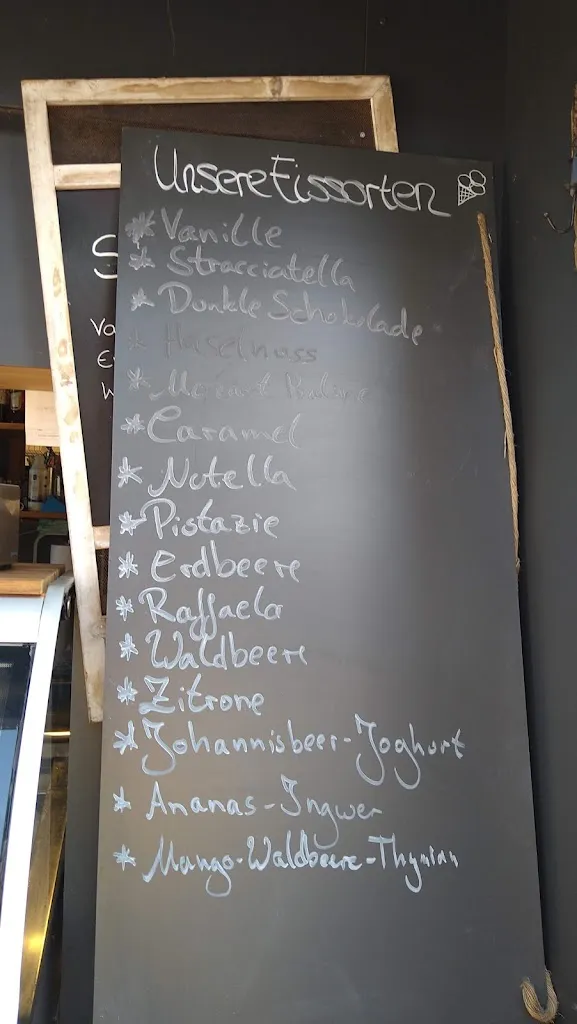 Unsere Eissorten
* Vanille
* Stracciatella
* Dunkle Schokolade
* Haselnuss
* Mozart
* Caramel
* Nutella
* Pistazie
* Erdbeere
* Raffaelo
* Waldbeere
* Zitrone
* Johannisbeer-Joghurt
* Ananas-Ingwer
* Mango-Waldbeere-Thymian